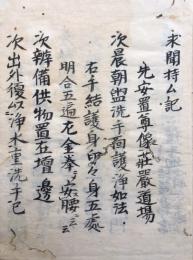 求聞持ム記
先安置尊像莊嚴道場
次晨朝盥洗手面護淨如法
右手結護身印、身五處
明合五遍 左金拳安腰
次辨備供物置五壇邊
次出外復以淨水重洗手已